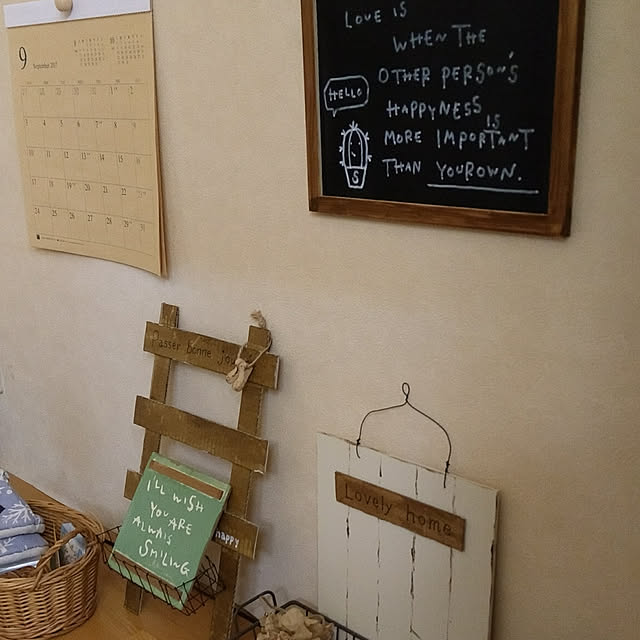 9
September 2017
LOVE IS
WHEN THE
OTHER PERSON'S
HAPPYNESS
IS
MORE IMPORTANT
THAN YOUROWN.
HELLO
S
Passer bonne
I'LL WISH
YOU ARE
ALWAIS
SMILING.
happy
Lovely home